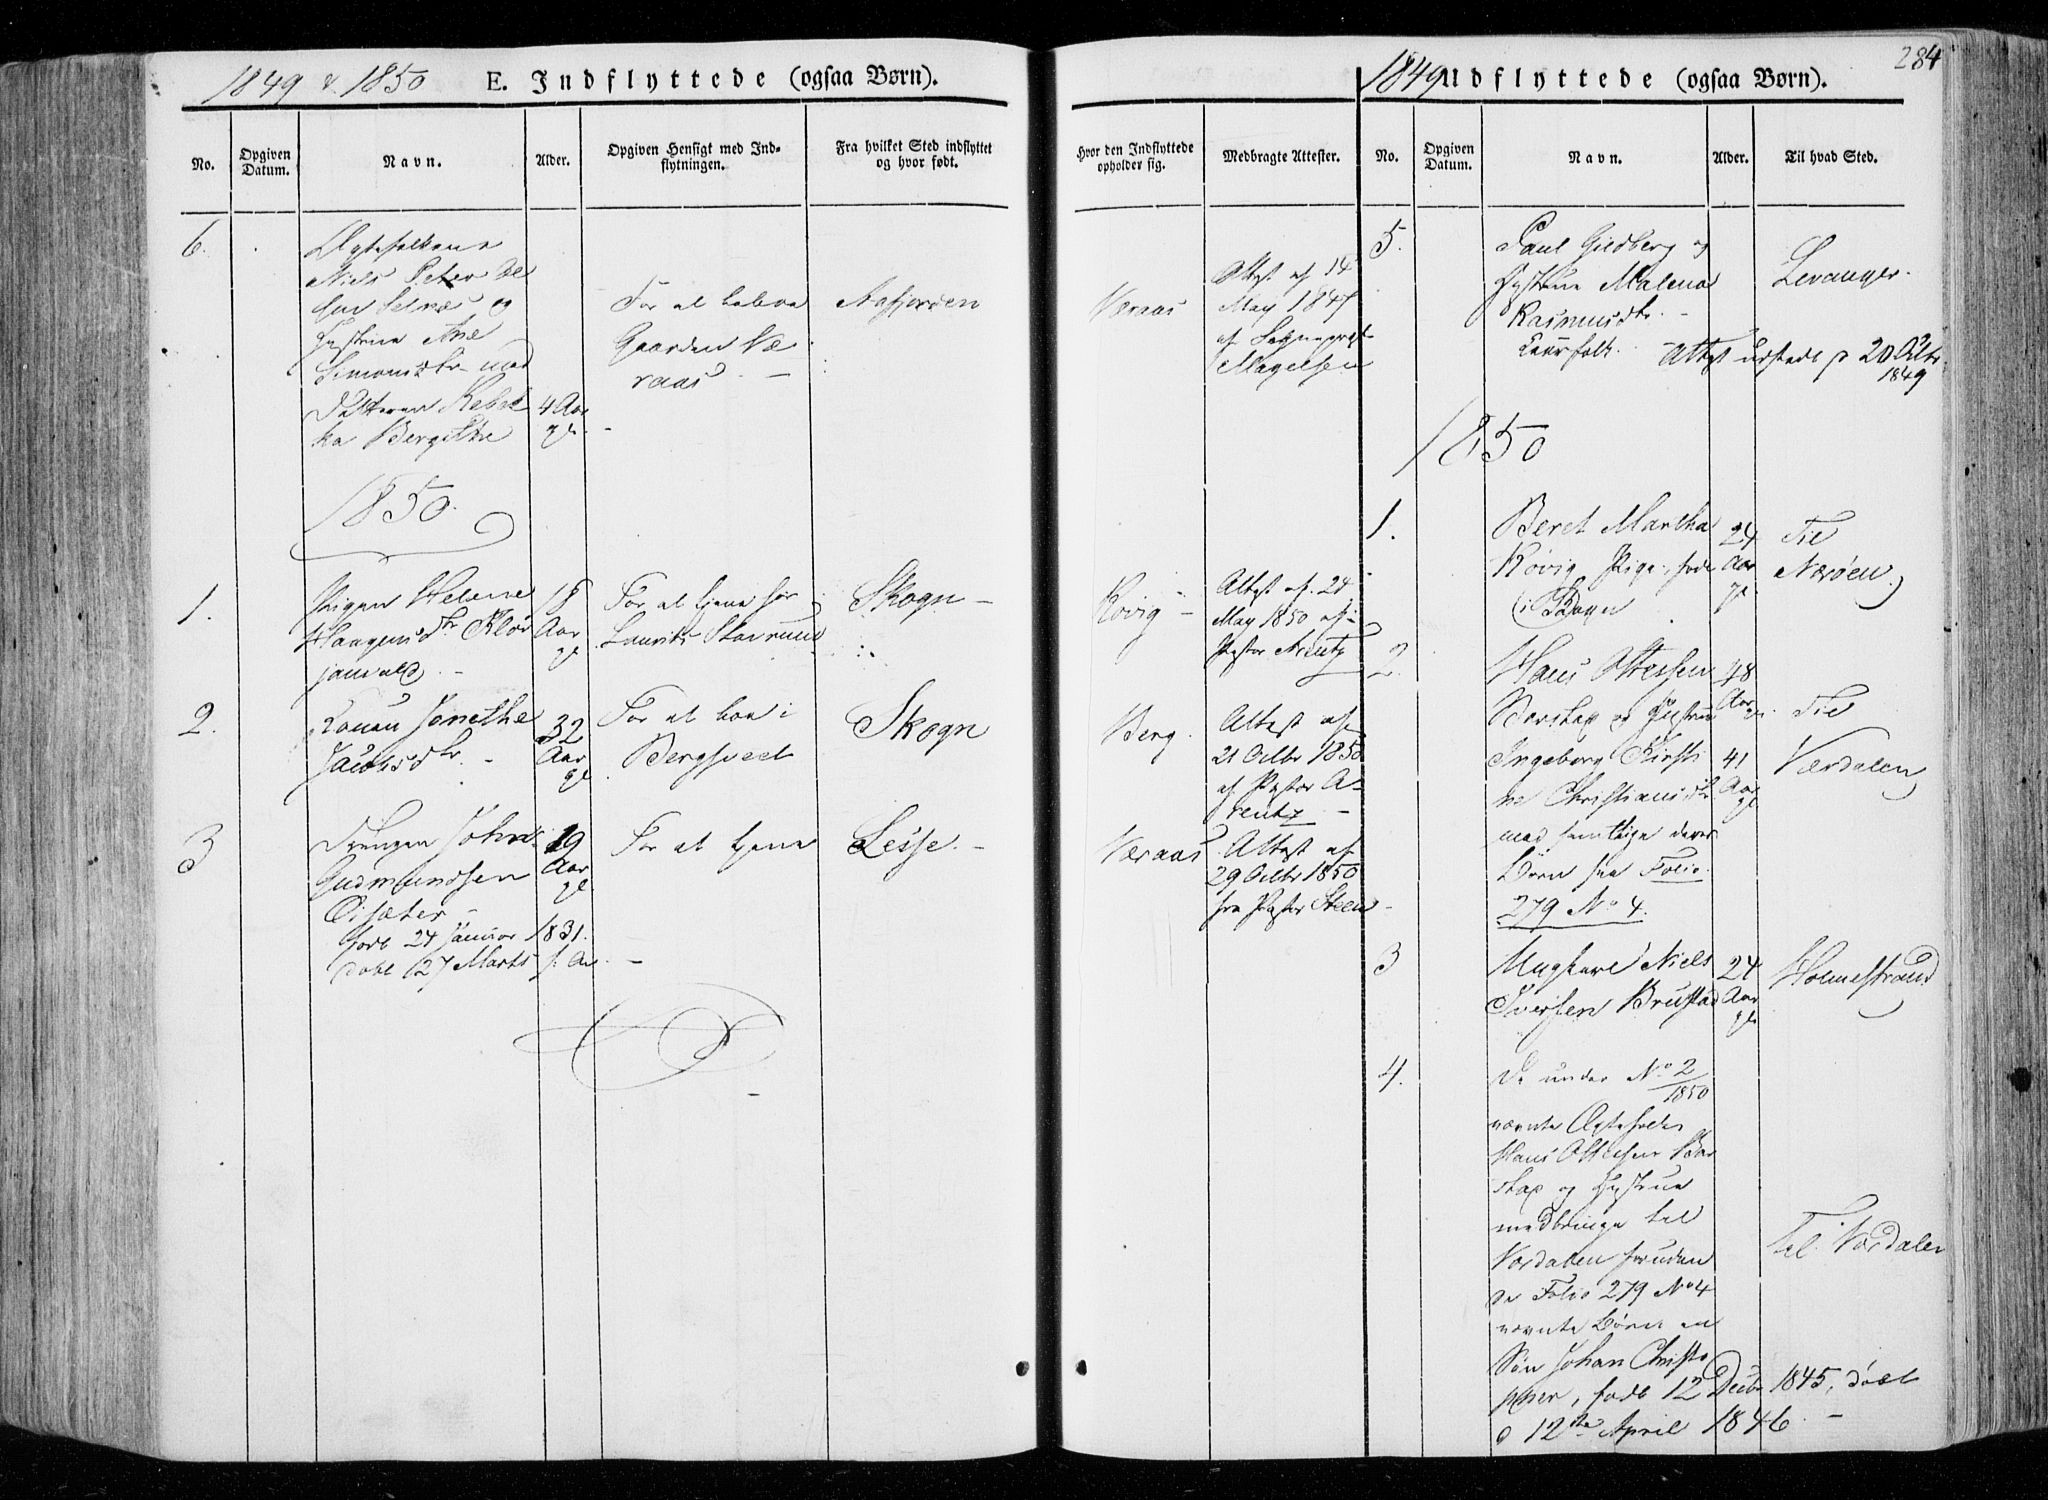 1849 & 1850 E. Indflyttede (ogsaa Børn).
No.
Opgiven Datum.
Navn.
Alder.
Opgiven Hensigt med Ind-
flytningen.
Fra hvilket Sted indflyttet
og hvor født.
Hvor den Indflyttede
opholder sig.
Medbragte Attester.
6.
Ægtefolkene
Niels Peter Ol
sen Selnæs og
Hustrue Ane
Simonsdtr med
Datteren Rebek
ka Bergithe
4 Aar
gl.
For at beboe
Gaarden Væ
raas
Aafjorden
Væraas
Attest af 14
May 1847
af Sognepræst
Magelsen
1850.
1.
Pigen Helene
Haagensdtr Kløv
janvald
18
Aar
gl
For at tjene hos
Lauritz Stavrum
Skogn
Rovig
Attest af 24
May 1850 af
Pastor Arentz
2.
Konen Jonethe
Jacobsdtr.
32
Aar
gl
For at boe i
Bergsveet
Skogn
Berg.
Attest af
21 Octbr 1850
af Pastor A-
rentz
3
Drengen John
Gudmundsen
Oisæter
født 24 Januar 1831.
døbt 27 Marts s. A.
19
Aar
gl.
For at tjene
Lesje.
Væraas
Attest af
29 Octbr 1850
fra Pastor Steen
1849 Udflyttede (ogsaa Børn).
284
No.
Opgiven
Datum.
Navn.
Alder.
Til hvad Sted.
5.
Paul Gildberg og
Hystrue Malena
Rasmusdtr.
Attest udstedt 20 Octbr
1849
Levanger.
1850
1.
Beret Martha
Røvig, Pige, født
i Skogn
24
Aar
gl.
Til
Nærøen
2.
Hans Ottesen
Borstap og Hystrue
Ingeborg Kirsti
ne Christiansdtr
med samtlige deres
Børn see Folio
279 No 4.
48
Aar
gl.
41
Aar
gl
Til
Værdalen
3
Ungkarl Niels
Iversen Brustad
24
Aar
gl.
Holmestrand
4.
De under No 2/1850
nævnte Ægtefolk
Hans Ottesen Bor
stap og Hystrue
medbringe til
Værdalen foruden
de Folio 279 No 4
nævnte Børn en
Søn Johan Christo
pher, født 12 Decbr 1845, døbt
d 12te April 1846.
til Værdalen